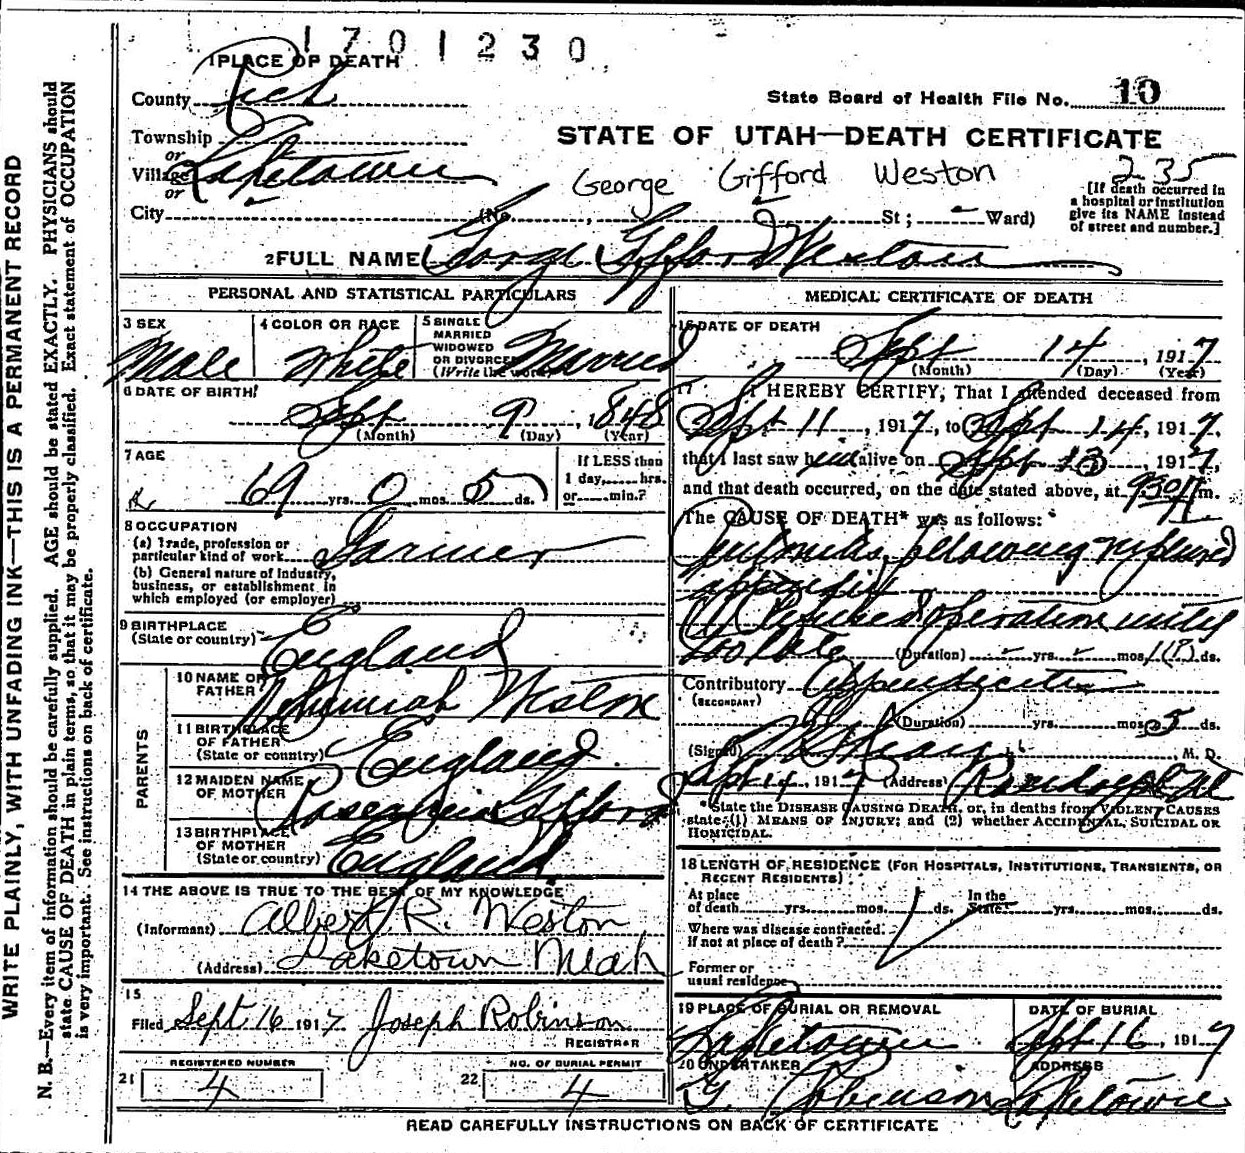 1701230
1 PLACE OF DEATH
County Rich
State Board of Health File No. 10
Township
or
Village Laketown
or
STATE OF UTAH—DEATH CERTIFICATE
George Gifford Weston
235
City (No. , St ; Ward)
[If death occurred in
a hospital or institution
give its NAME instead
of street and number.]
2 FULL NAME George Gifford Weston
PERSONAL AND STATISTICAL PARTICULARS
3 SEX
Male
4 COLOR OR RACE
White
5 SINGLE
MARRIED
WIDOWED
OR DIVORCED
(Write the word)
Married
6 DATE OF BIRTH
Sept 9, 1848
(Month) (Day) (Year)
7 AGE
69 yrs. 0 mos. 5 ds.
If LESS than
1 day, hrs.
or min.?
8 OCCUPATION
(a) Trade, profession or
particular kind of work Farmer
(b) General nature of industry,
business, or establishment in
which employed (or employer)
9 BIRTHPLACE
(State or country) England
PARENTS
10 NAME OF
FATHER Weston
11 BIRTHPLACE
OF FATHER
(State or country) England
12 MAIDEN NAME
OF MOTHER Gifford
13 BIRTHPLACE
OF MOTHER
(State or country) England
14 THE ABOVE IS TRUE TO THE BEST OF MY KNOWLEDGE
(Informant) Albert R. Weston
(Address) Laketown Utah
15
Filed Sept 16 1917 Joseph Robinson
REGISTRAR
REGISTERED NUMBER
21 4
NO. OF BURIAL PERMIT
22 4
MEDICAL CERTIFICATE OF DEATH
16 DATE OF DEATH
Sept 14, 1917
(Month) (Day) (Year)
17 I HEREBY CERTIFY, That I attended deceased from
Sept 11, 1917, to Sept 14, 1917,
that I last saw him alive on Sept 13, 1917,
and that death occurred, on the date stated above, at 930 A m.
The CAUSE OF DEATH* was as follows:
following ruptured
appendix
Refused operation until
too late (Duration) yrs. mos. ds.
Contributory Appendicitis
(SECONDARY)
(Duration) yrs. mos. 5 ds.
(Signed) M. D.
Sept 14, 1917 (Address) Randolph
*State the DISEASE CAUSING DEATH, or, in deaths from VIOLENT CAUSES
state (1) MEANS OF INJURY; and (2) whether ACCIDENTAL, SUICIDAL OR
HOMICIDAL.
18 LENGTH OF RESIDENCE (FOR HOSPITALS, INSTITUTIONS, TRANSIENTS, OR
RECENT RESIDENTS)
At place
of death yrs. mos. ds. In the
State yrs. mos. ds.
Where was disease contracted
if not at place of death?
Former or
usual residence
19 PLACE OF BURIAL OR REMOVAL
Laketown
DATE OF BURIAL
Sept 16, 1917
20 UNDERTAKER
Robinson
ADDRESS
Laketown
READ CAREFULLY INSTRUCTIONS ON BACK OF CERTIFICATE
WRITE PLAINLY, WITH UNFADING INK—THIS IS A PERMANENT RECORD
N. B.—Every item of information should be carefully supplied. AGE should be stated EXACTLY. PHYSICIANS should
state CAUSE OF DEATH in plain terms, so that it may be properly classified. Exact statement of OCCUPATION
is very important. See instructions on back of certificate.